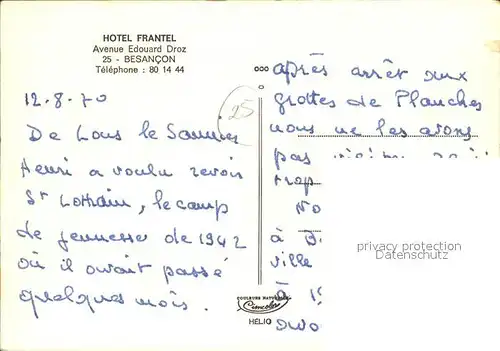 HOTEL FRANTEL
Avenue Edouard Droz
25 - BESANÇON
Téléphone : 80 14 44
12.8.70
25
De Lons le Saunier
Henri a voulu revoir
St Lothain, le camp
de jeunesse de 1942
où il avait passé
quelques mois.
après arrêt aux
grottes de Planches
nous ne les avons
pas
trop
No
à B
ville
à 19
avo
privacy protection
Datenschutz
COULEURS NATURELLES
Cimcolor
HÉLIO